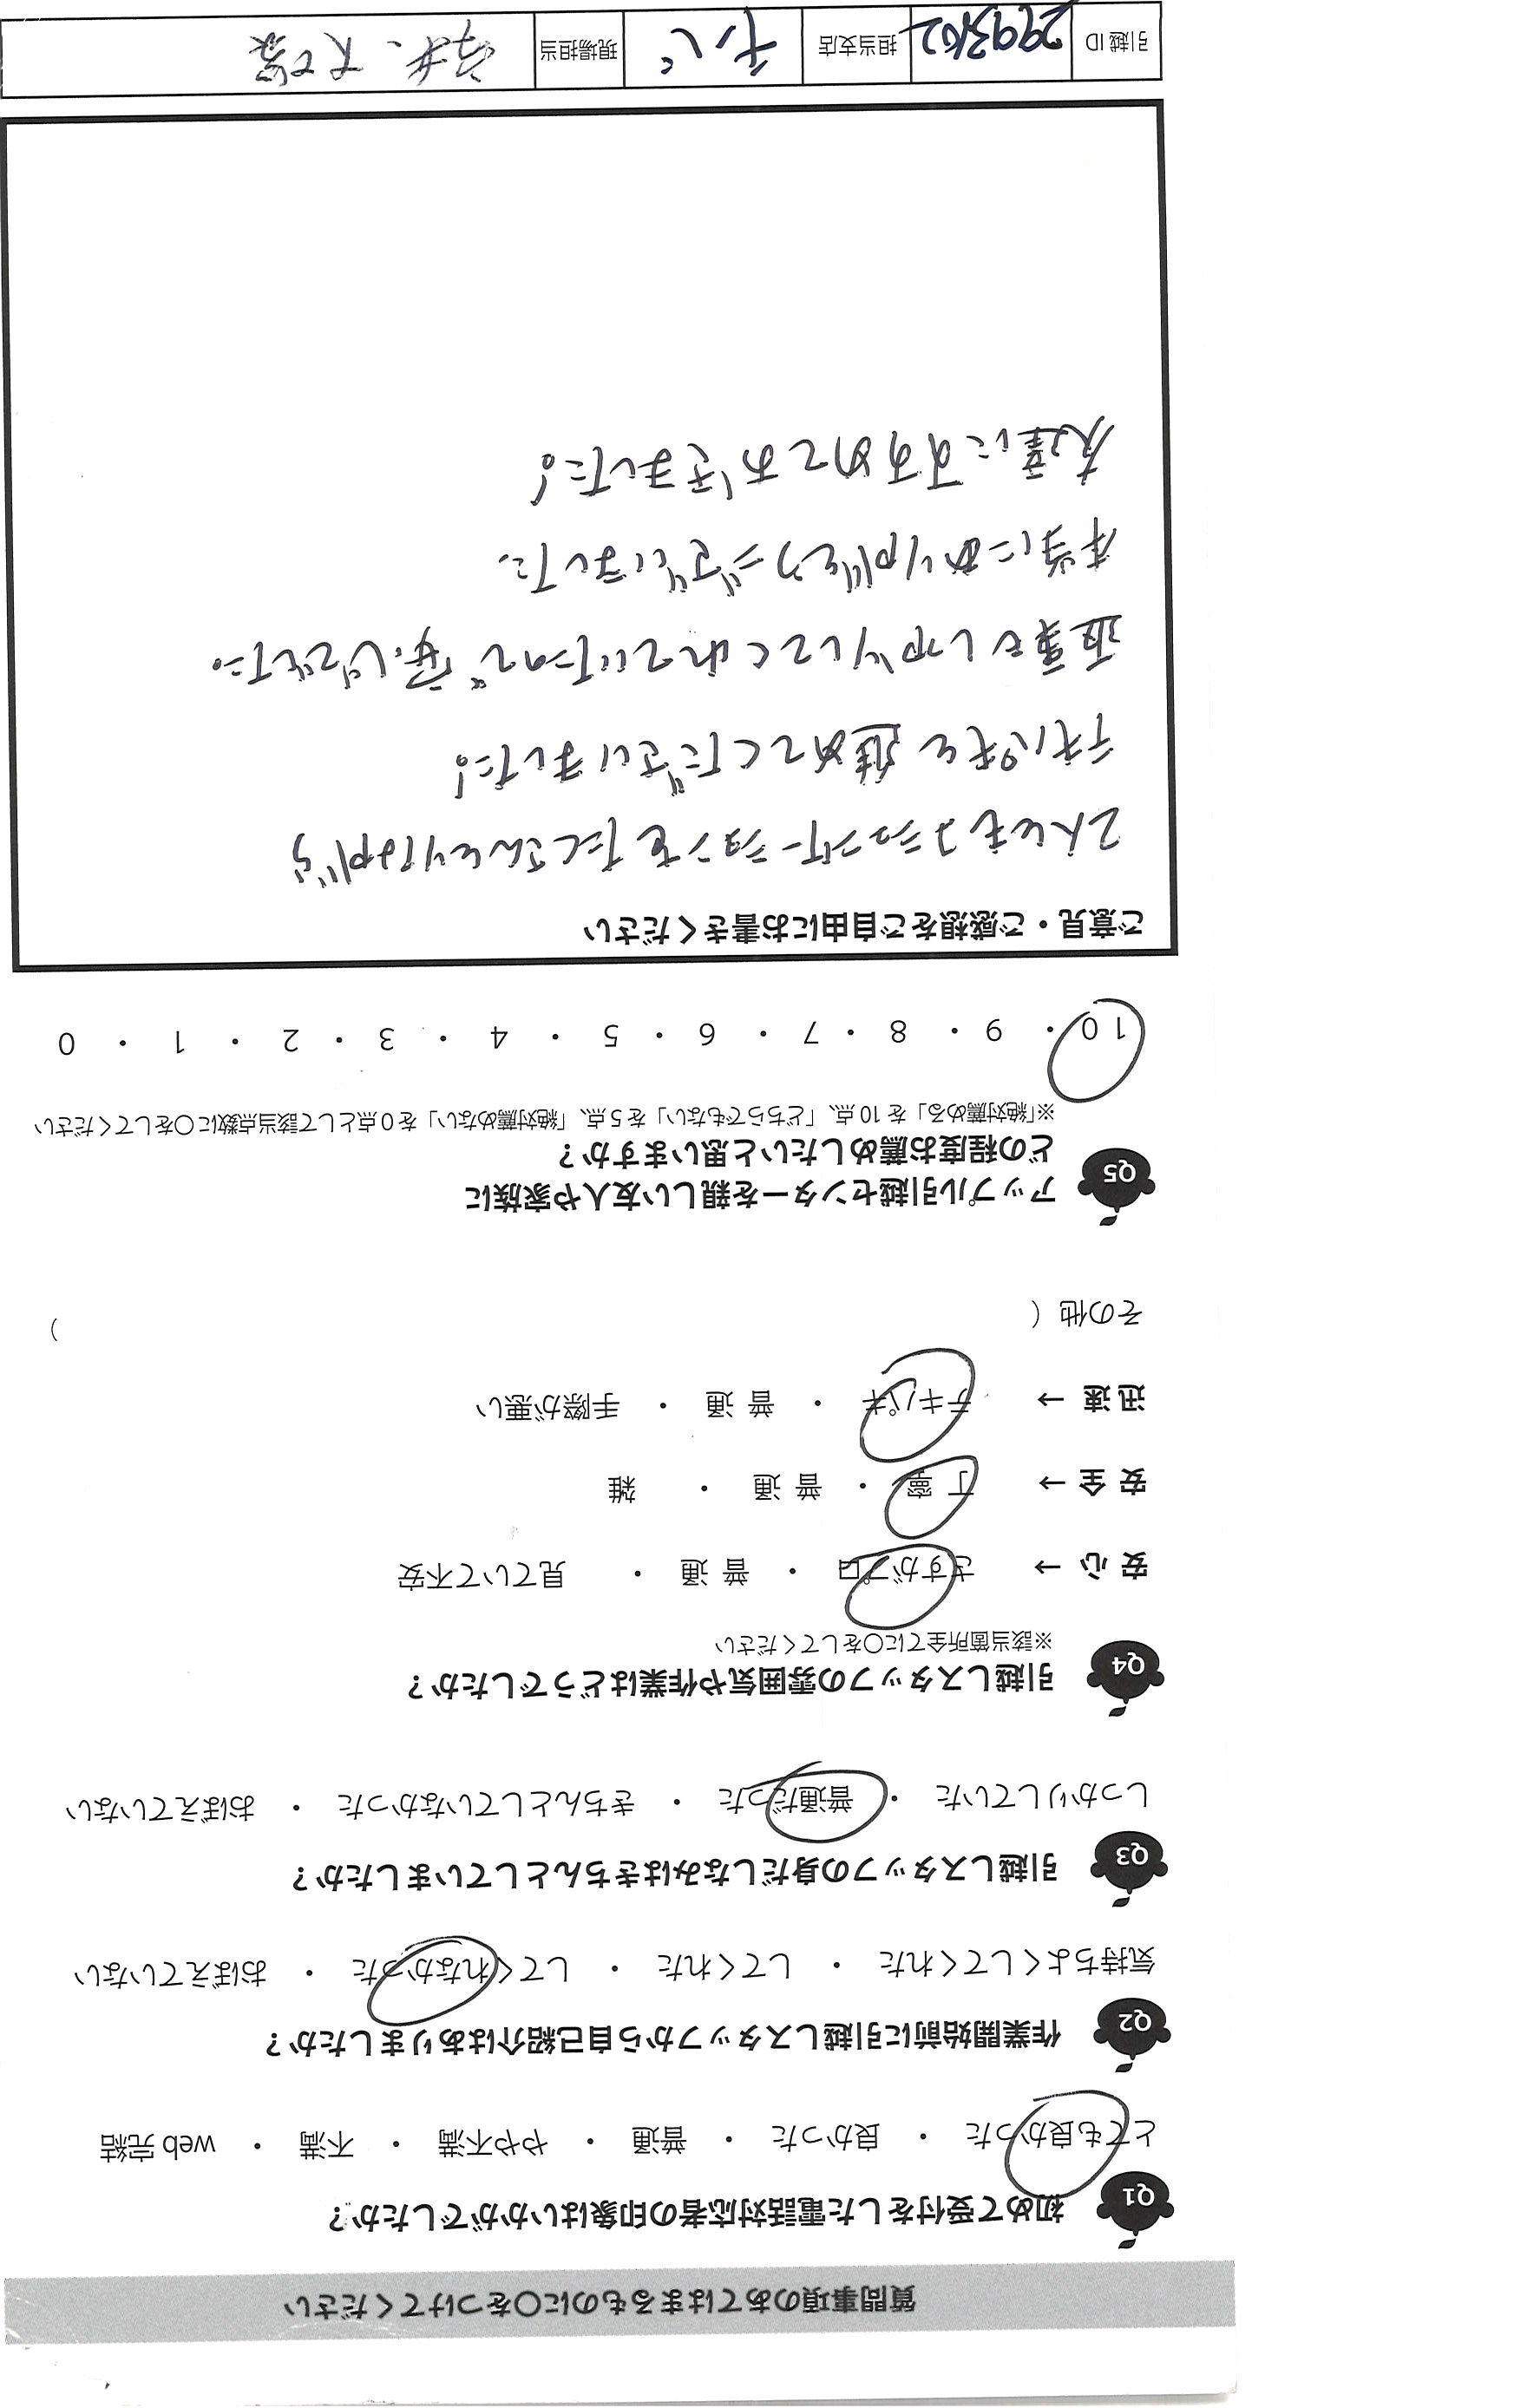 質問事項のあてはまるものに〇をつけてください
Q1 初めて受付をした電話対応者の印象はいかがでしたか？
とても良かった ・ 良かった ・ 普通 ・ やや不満 ・ 不満 ・ web 完結
Q2 作業開始前に引越しスタッフから自己紹介はありましたか？
気持ちよくしてくれた ・ してくれた ・ してくれなかった ・ おぼえていない
Q3 引越しスタッフの身だしなみはきちんとしていましたか？
しっかりしていた ・ 普通だった ・ きちんとしていなかった ・ おぼえていない
Q4 引越しスタッフの雰囲気や作業はどうでしたか？
※該当箇所全てに〇をしてください
安心 → さすがプロ ・ 普通 ・ 見ていて不安
安全 → 丁寧 ・ 普通 ・ 雑
迅速 → テキパキ ・ 普通 ・ 手際が悪い
その他（ ）
Q5 アップル引越センターを親しい友人や家族に
どの程度お薦めしたいと思いますか？
※「絶対薦める」を 10 点、「どちらでもない」を 5 点、「絶対薦めない」を 0 点として該当点数に〇をしてください
10 ・ 9 ・ 8 ・ 7 ・ 6 ・ 5 ・ 4 ・ 3 ・ 2 ・ 1 ・ 0
ご意見・ご感想をご自由にお書きください
2人ともコミュニケーションをたくさんとりながら
テキパキと進めてくださいました！
養生もしっかりしてくれていたので安心でした。
本当にありがとうございました。
友達にすすめておきました！
引越 ID 2993102 担当支店 現場担当